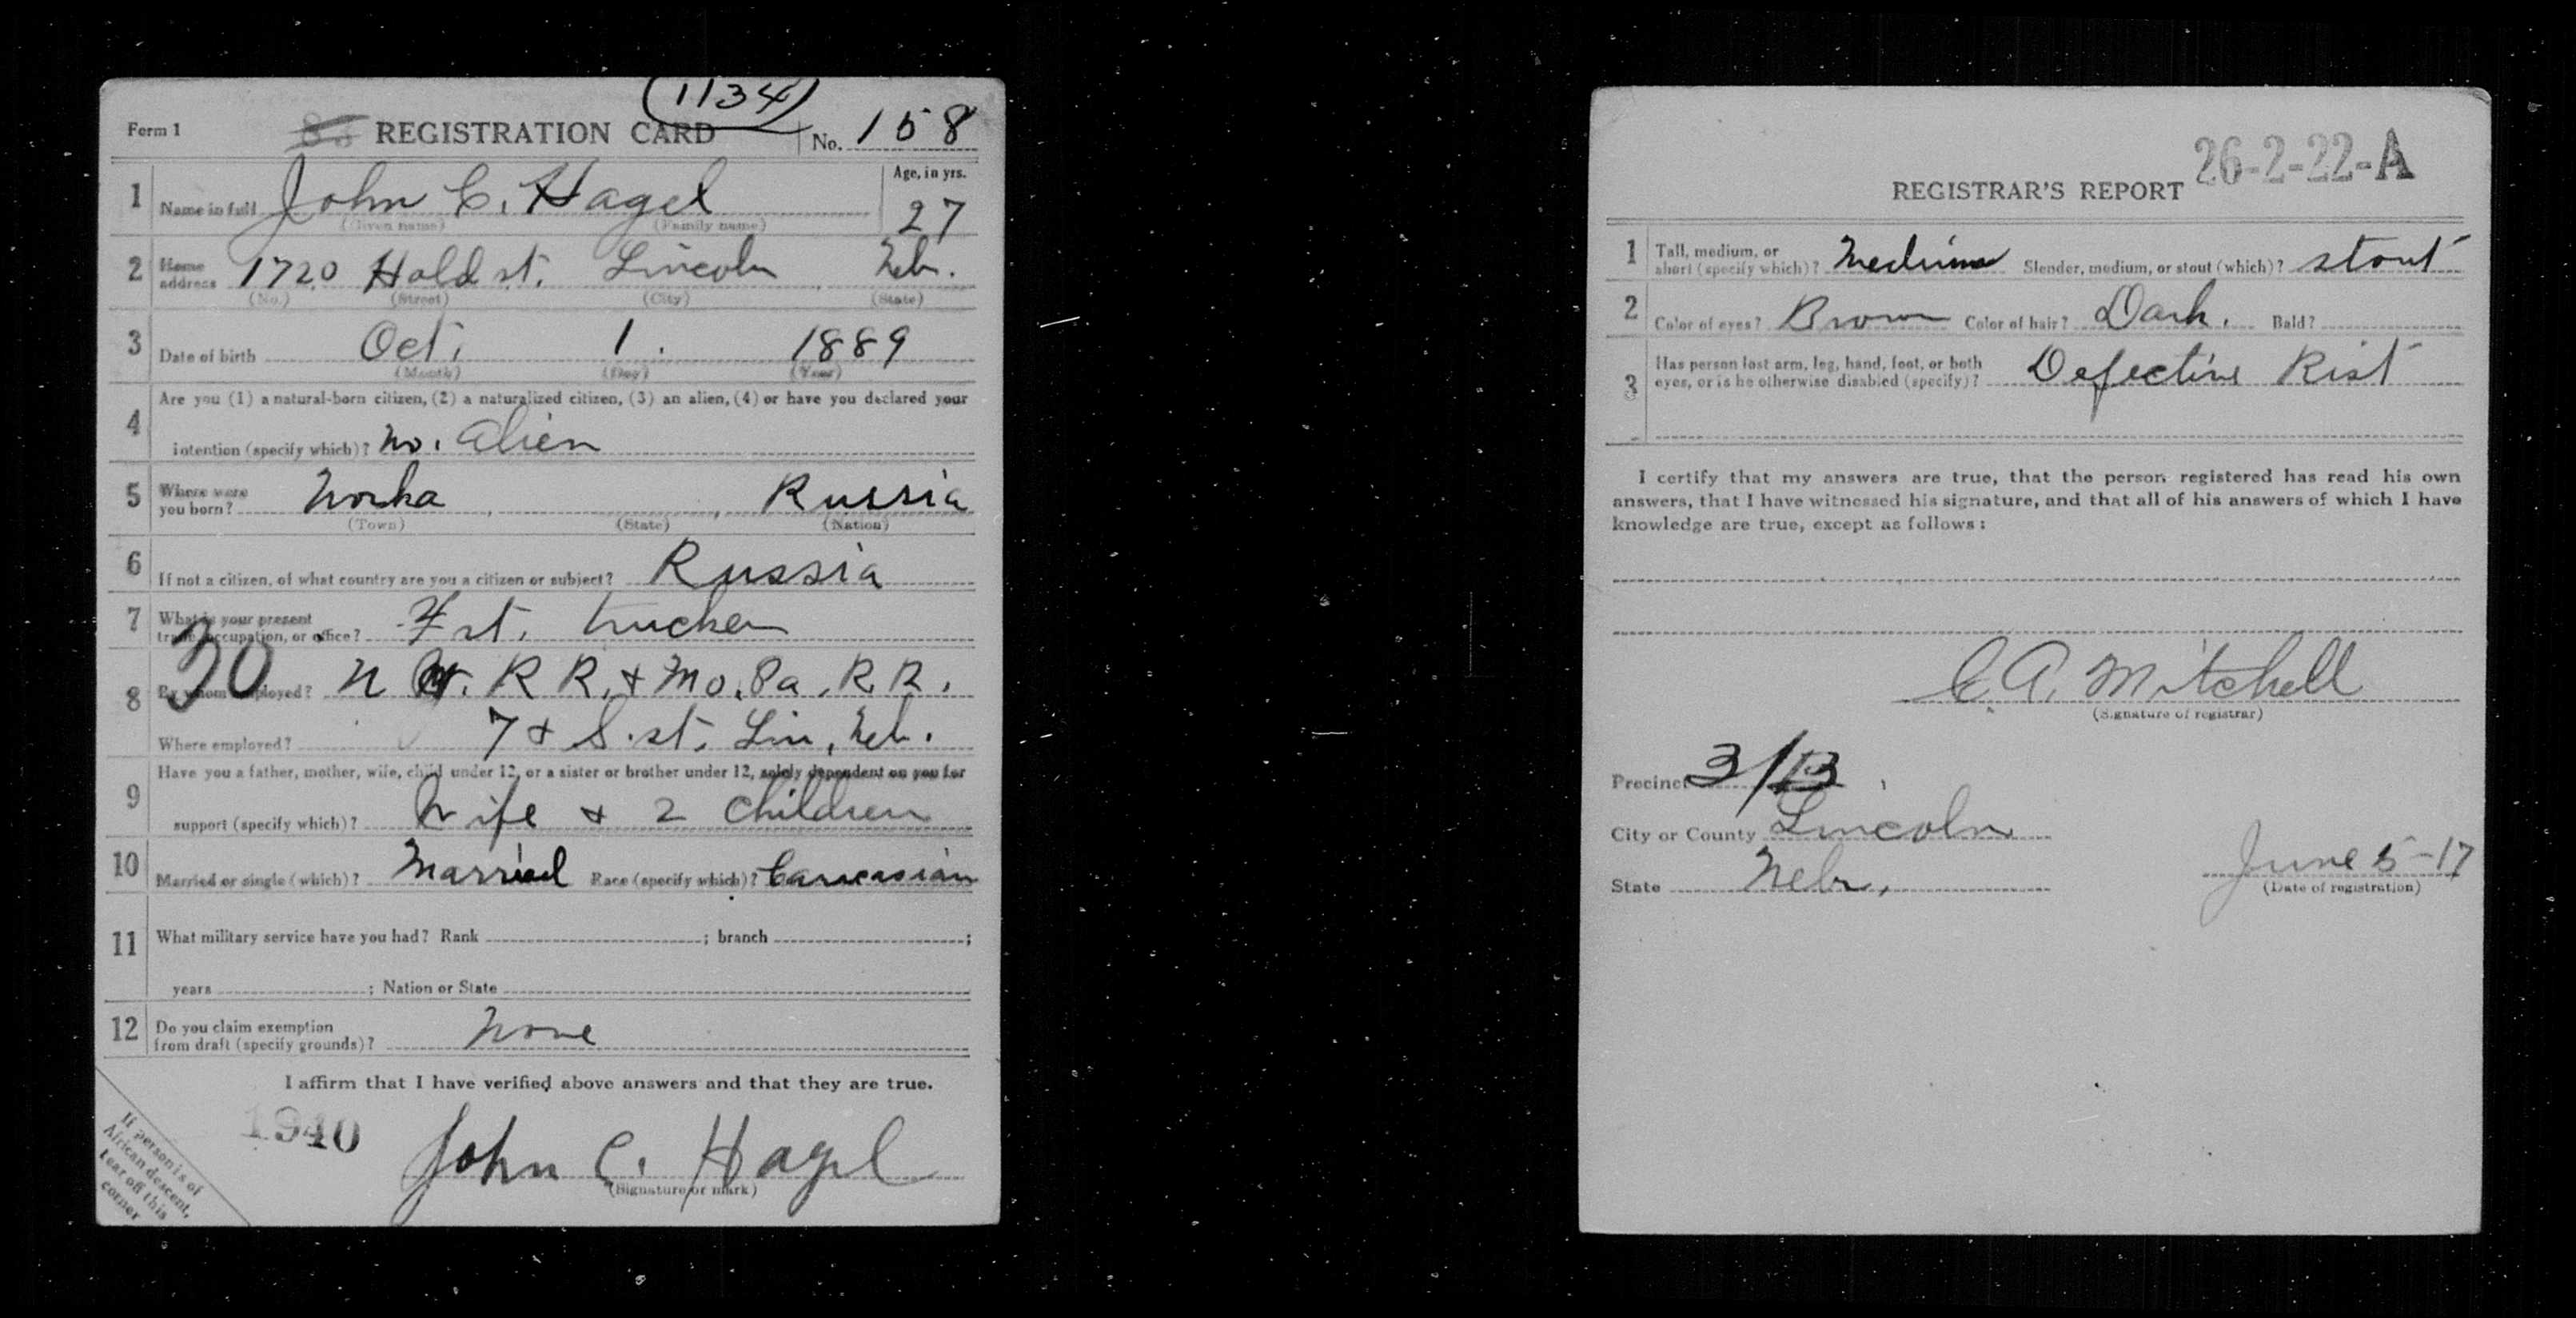 (1134)
Form 1 REGISTRATION CARD No. 158
1 Name in full John C. Hagel Age, in yrs.
(Given name) (Family name) 27
2 Home address 1720 Hold st. Lincoln Neb.
(No.) (Street) (City) (State)
3 Date of birth Oct. 1. 1889
(Month) (Day) (Year)
4 Are you (1) a natural-born citizen, (2) a naturalized citizen, (3) an alien, (4) or have you declared your
intention (specify which)? No. Alien
5 Where were you born? Norka, , Russia
(Town) (State) (Nation)
6 If not a citizen, of what country are you a citizen or subject? Russia
7 What is your present trade, occupation, or office? Frt. trucker
30
8 By whom employed? N W. R R. + Mo. Pa. R. R.
Where employed? 7 + S. st. Lin, Neb.
9 Have you a father, mother, wife, child under 12, or a sister or brother under 12, solely dependent on you for
support (specify which)? Wife + 2 children
10 Married or single (which)? Married Race (specify which)? Caucasian
11 What military service have you had? Rank ; branch ;
years ; Nation or State
12 Do you claim exemption from draft (specify grounds)? None
I affirm that I have verified above answers and that they are true.
1940
John C. Hagel
(Signature or mark)
If person is of
African descent,
tear off this
corner
26-2-22-A
REGISTRAR'S REPORT
1 Tall, medium, or short (specify which)? Medium Slender, medium, or stout (which)? stout
2 Color of eyes? Brown Color of hair? Dark. Bald?
3 Has person lost arm, leg, hand, foot, or both
eyes, or is he otherwise disabled (specify)? Defective Rist
I certify that my answers are true, that the person registered has read his own
answers, that I have witnessed his signature, and that all of his answers of which I have
knowledge are true, except as follows:
C. A. Mitchell
(Signature of registrar)
Precinct 3/B
City or County Lincoln
State Nebr. June 5-17
(Date of registration)